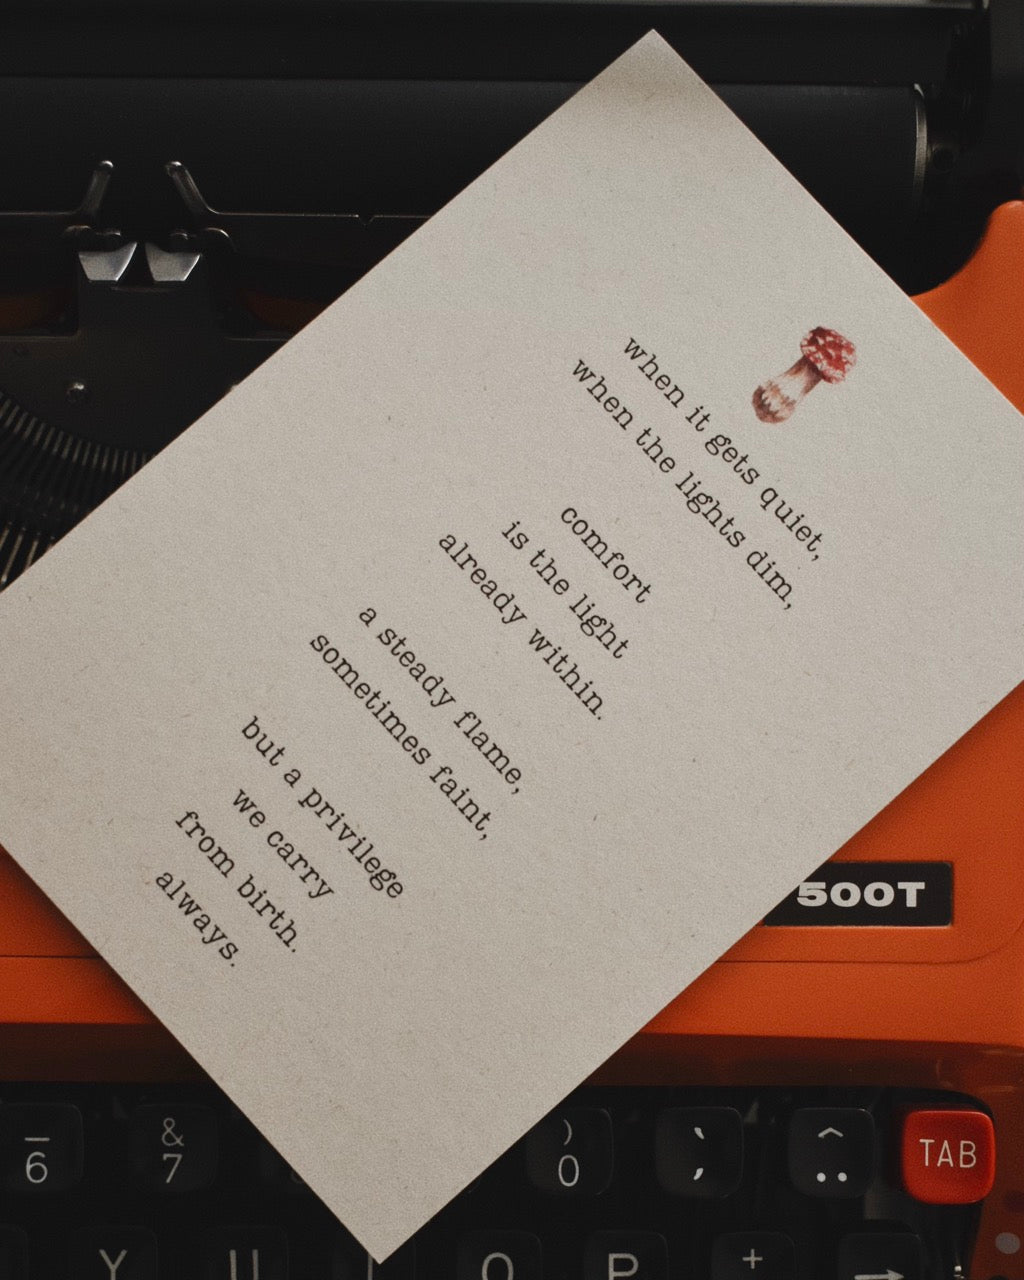 when it gets quiet,
when the lights dim,
comfort
is the light
already within.
a steady flame,
sometimes faint,
but a privilege
we carry
from birth.
always.
500T
_ & ) ` ^
6 7 0 , ¨ TAB
Y U O P +
→